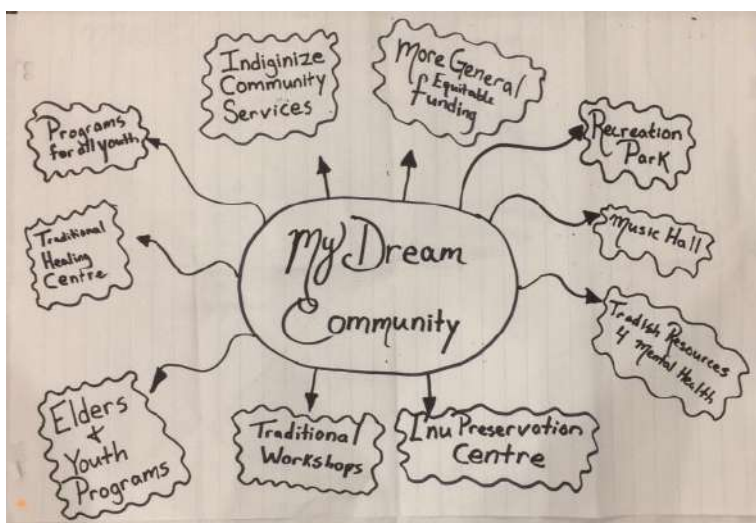 My Dream
Community
Indiginize
Community
Services
More General
Equitable
funding
Recreation
Park
Music Hall
Tradish Resources
4 Mental Health
Inu Preservation
Centre
Traditional
Workshops
Elders
+
Youth
Programs
Traditional
Healing
Centre
Programs
for all youth